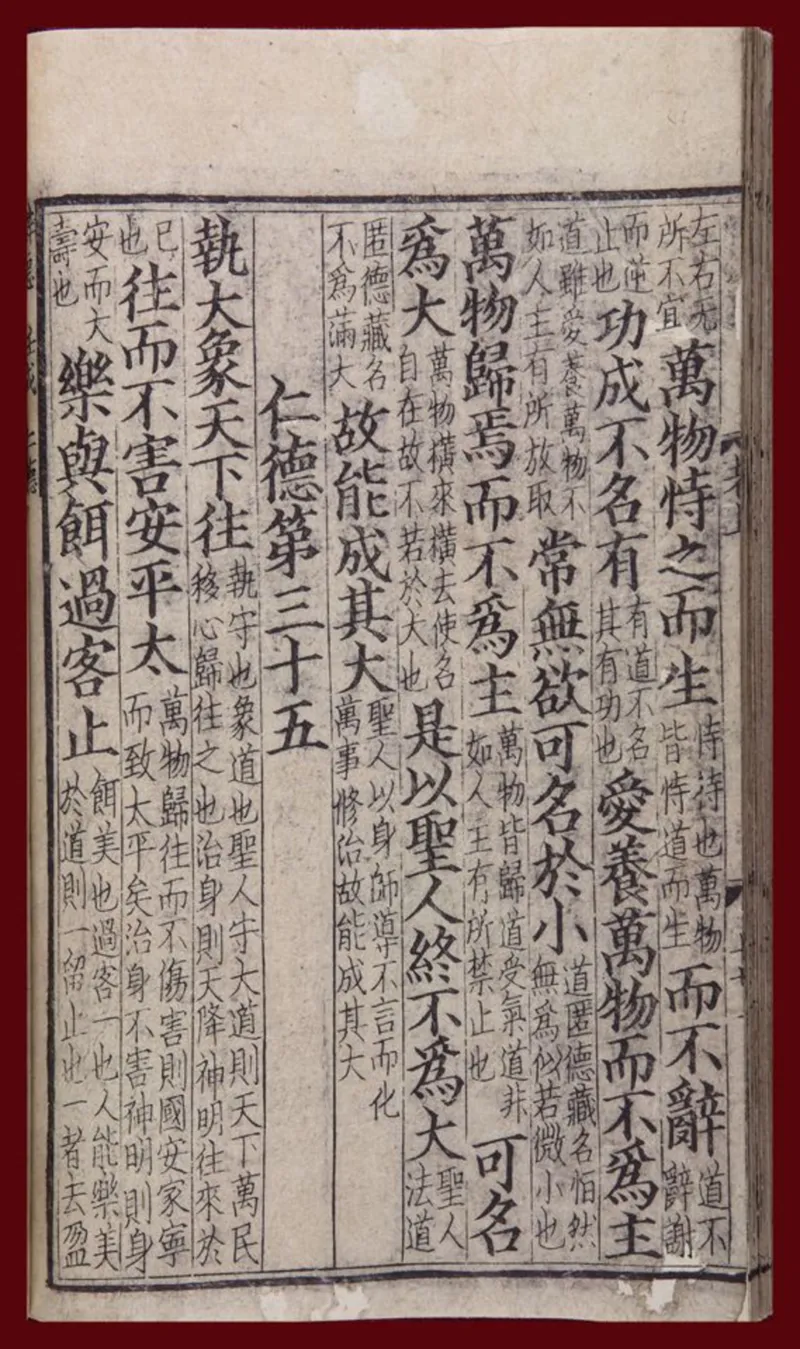 左右无所不宜萬物恃之而生恃待也萬物皆恃道而生而不辭道不辭謝
而逆止也功成不名有有道不名其有功也愛養萬物而不爲主
道雖愛養萬物不如人主有所放取常無欲可名於小道匿德藏名怕然無爲似若微小也
萬物歸焉而不爲主萬物皆歸道受氣道非如人主有所禁止也可名
爲大萬物橫來橫去使名自在故不若於大也是以聖人終不爲大聖人法道
匿德藏名不爲滿大故能成其大聖人以身師導不言而化萬事修治故能成其大
仁德第三十五
執大象天下往執守也象道也聖人守大道則天下萬民移心歸往之也治身則天降神明往來於
已也往而不害安平太萬物歸往而不傷害則國安家寧而致太平矣治身不害神明則身
安而大壽也樂與餌過客止餌美也過客一也人能樂美於道則一留止也一者去盈